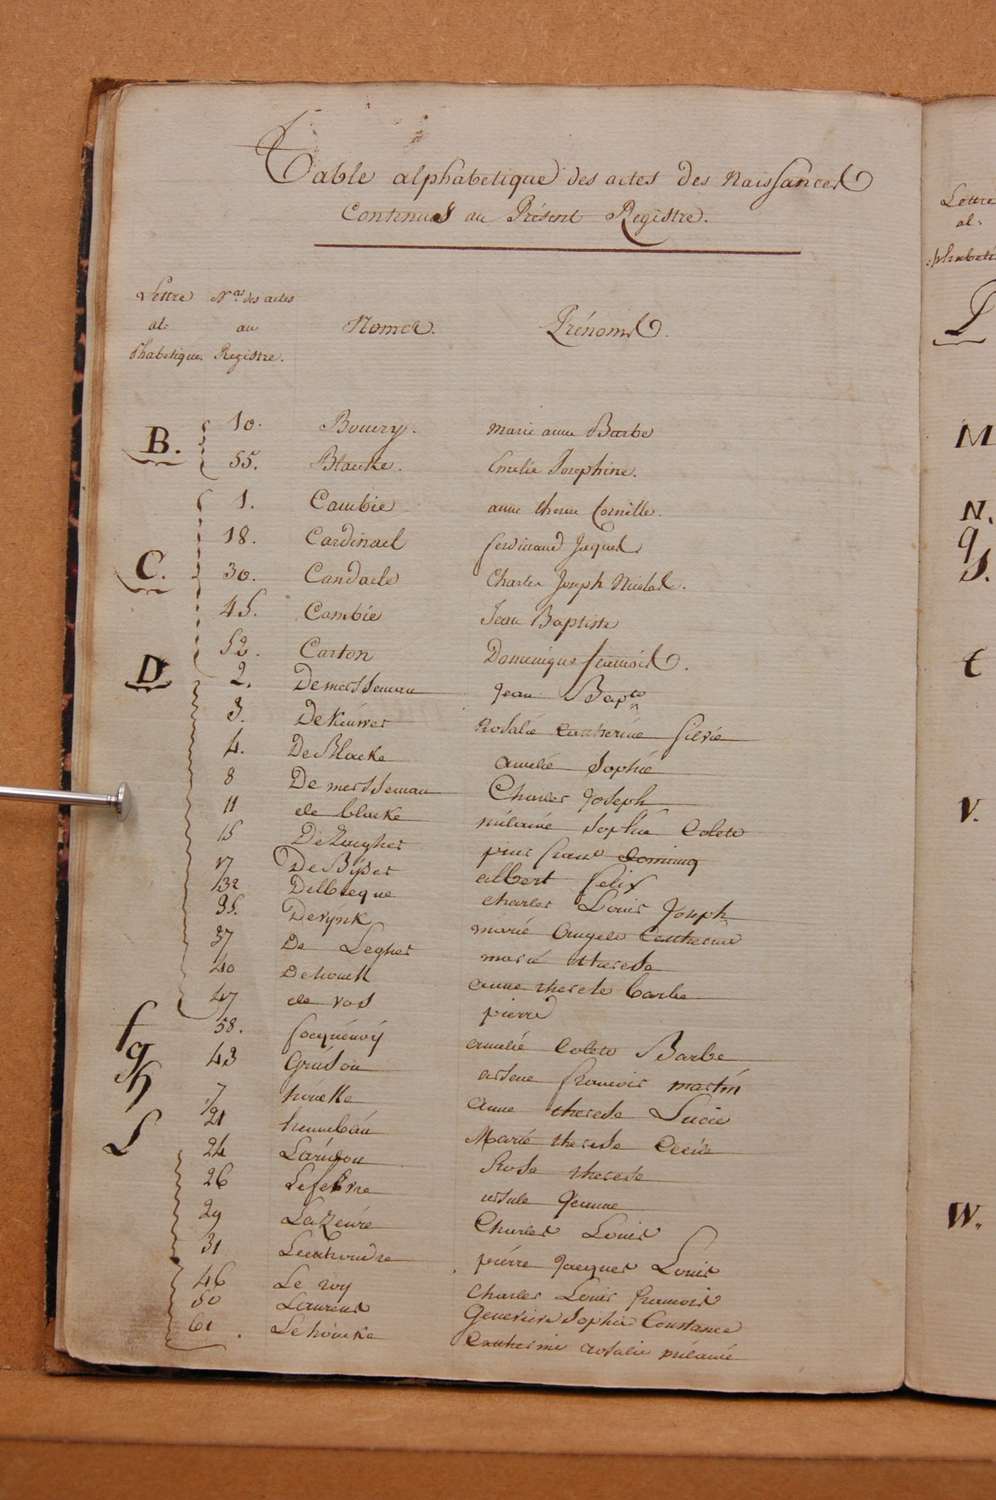 Table alphabetique des actes des Naissances
Contenues au Présent Registre.
Lettre al= phabetique. N.os des actes au Registre. Nomes. Prénoms.
B. 10. Bouvry. marie anne Barbe
55. Blancke. Emelie Josephine.
1. Cambie anne therese Cornille.
18. Cardinael ferdinand Jaques
C. 30. Candaele Charles Joseph Nicolas.
45. Cambie Jean Baptiste
52. Carton Dominique francois.
D 2. Demersseman jean Bapte
3. DeKeuwer Rosalie catherine silvie
4. DeBlocke amelie Sophie
8 Demersseman Charles joseph
11 de blocke mélanie Sophie Colete
15 DeZuygher pier
17 DeByser albert felix
32 Delbecque charles Louis Joseph
35. Derynk marie Angele Catherine
37 De Legher marie therese
40 Dehouck anne therese barbe
47 de vos pierre
f 58. focquenoy amelie Colete Barbe
g 43 Gruson arsene francois martin
h 7 houcke anne therese Lucie
21 Marie therese Cecile
L 24 Larisson Rosa therese
26 Lefebvre ursule Jeanne
29 LaZeure Charles Louis
31 pierre jacques Louis
46 Le roy Charles Louis francois
50 Laureus Genevieve Sophie Constance
61. Lehoucke Catherine rosalie mélanie
Lettre
al=
phabeti
M
N.
V.
W.